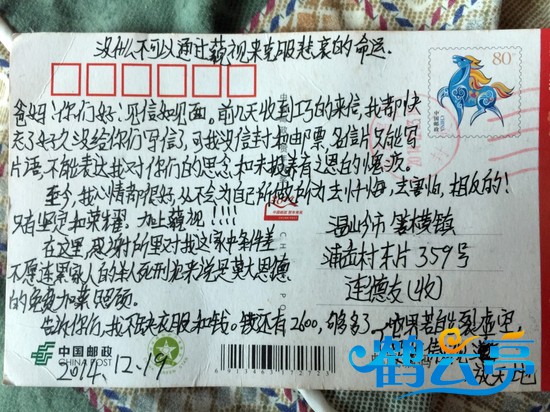 没什么不可以通过藐视来克服悲哀的命运.
80分
中国邮政
CHINA
爸妈!你们好!见信如见面.前几天收到巧的来信,我都快
忘了好久没给你们写信,可我没信封和邮票,名信片只能写
片语,不能表达我对你们的思念和未报养育之恩的愧疚.
至今,我心情都很好,从不会为自己所做去忏悔,去害怕,相反的!
只有坚定和荣耀,加上藐视!!!!
在这里,恩谢所里对我这家中条件差
不愿连累家人的 死刑 来说是莫大恩德
的免费加菜照顾.
告诉你们,我不缺衣服和钱。钱还有2600,够多了
温岭市箬横镇
浦岙村 片359号
连德友(收)
中国邮政
CHINA POST
2014.12.19
鹤云亭